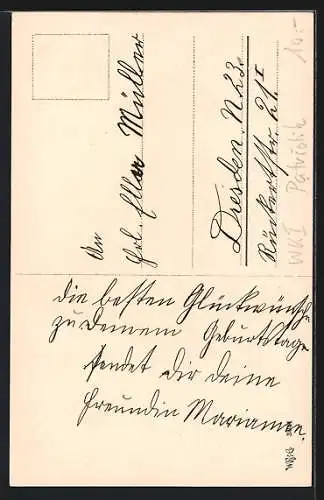 An
Frl. Ellen Müller
Dresden. N 23.
Rückertstr. 21 I
WK I Patriotik 10.-
Die besten Glückwünsche
zu Deinem Geburtstage
sendet Dir Deine
Freundin Marianne.